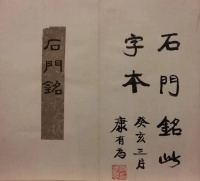 石門銘此
字本
癸亥三月
康有為
石門銘